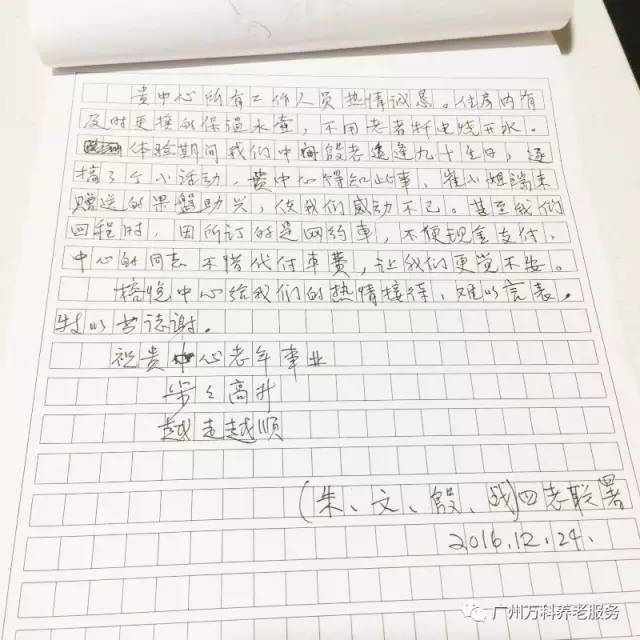 贵中心所有工作人员热情诚恳。住房内有
及时更换的保温水壶，不用老者折电烧开水。
体验期间我们中间殷老适逢九十生日，逐
搞了个小活动，贵中心得知此事，崔小姐端来
赠送的果盤助兴，使我们感动不已。甚至我们
回程时，因所订的是网约車，不便现金支付，
中心的同志不惜代付車费，让我们更觉不安。
榕悦中心给我们的热情接待，难以言表，
特以书
祝贵中心老年事业
步々高升
越走越顺
(朱、文、殷、战)四老联署
2016.12.24.
广州万科养老服务